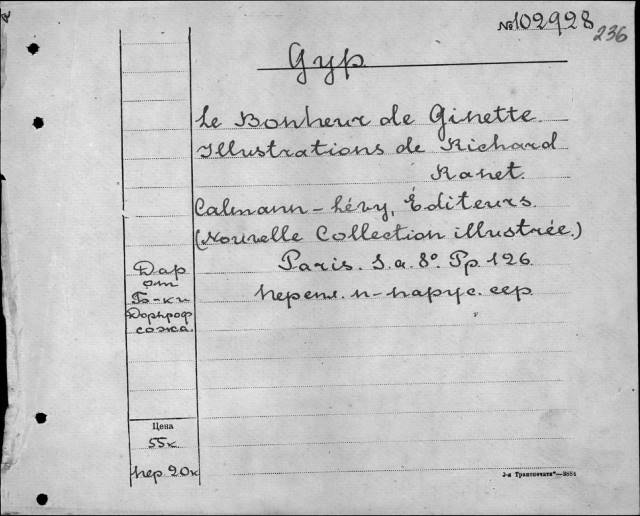 №102928
236
Gyp
Le Bonheur de Ginette.
Illustrations de Richard
Ranet.
Calmann-Lévy, Éditeurs.
(Nouvelle Collection illustrée.)
Paris. S. a. 8º. Pp. 126.
Дар
от
Б-ки
Дорпроф
сожа.
перепл. п-парус. сер.
Цена
55к
пер. 20к